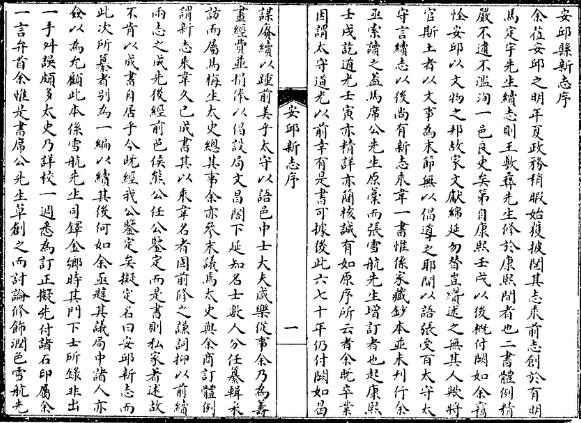 安邱縣新志序
余莅安邱之明年夏政務稍暇始獲披閱其志乘前志創於有明
馬定宇先生續志則王敷彝先生修於康熙間者也二書體例精
嚴不遺不濫洵一邑良史矣第自康熙壬戌以後概付闕如余竊
怪安邱以文物之邦故家文獻綿延勿替豈著述之無其人歟將
官斯土者以文事為末節無以倡導之耶間以語張受百太守太
守言續志以後尚有新志乘韋一書惟係家藏鈔本並未刊行余
亟索讀之蓋馬席公先生原稾而張雪航先生增訂者也起康熙
壬戌訖道光壬寅亦精詳亦簡核誠有如原序所云者余既卒業
因謂太守道光以前幸有是書可據後此六七十年仍付闕如曷
安邱新志序
一
謀賡續以踵前美乎太守以語邑中士大夫咸樂從事余乃為籌
畫經費並捐俸以倡設局文昌閣下延知名士數人分任纂輯采
訪而屬馬梅生太史總其事余亦參末議馬太史與余商訂體例
謂新志乘韋久已成書其以乘韋名者因前修之謙詞抑以前續
兩志之成先後經前邑侯熊公任公鑒定而是書則私家著述故
不肯以成書自居乎今既經我公鑒定矣擬定名曰安邱新志而
此次所纂者別為一編以續其後何如余亟韙其議局中諸人亦
僉以為允顧此本係雪航先生司鐸金鄉時其門下士所錄非出
一手舛誤頗多太史乃詳校一週悉為訂正擬先付諸石印屬余
一言弁首余惟是書席公先生草創之而討論修飾潤色雪航先